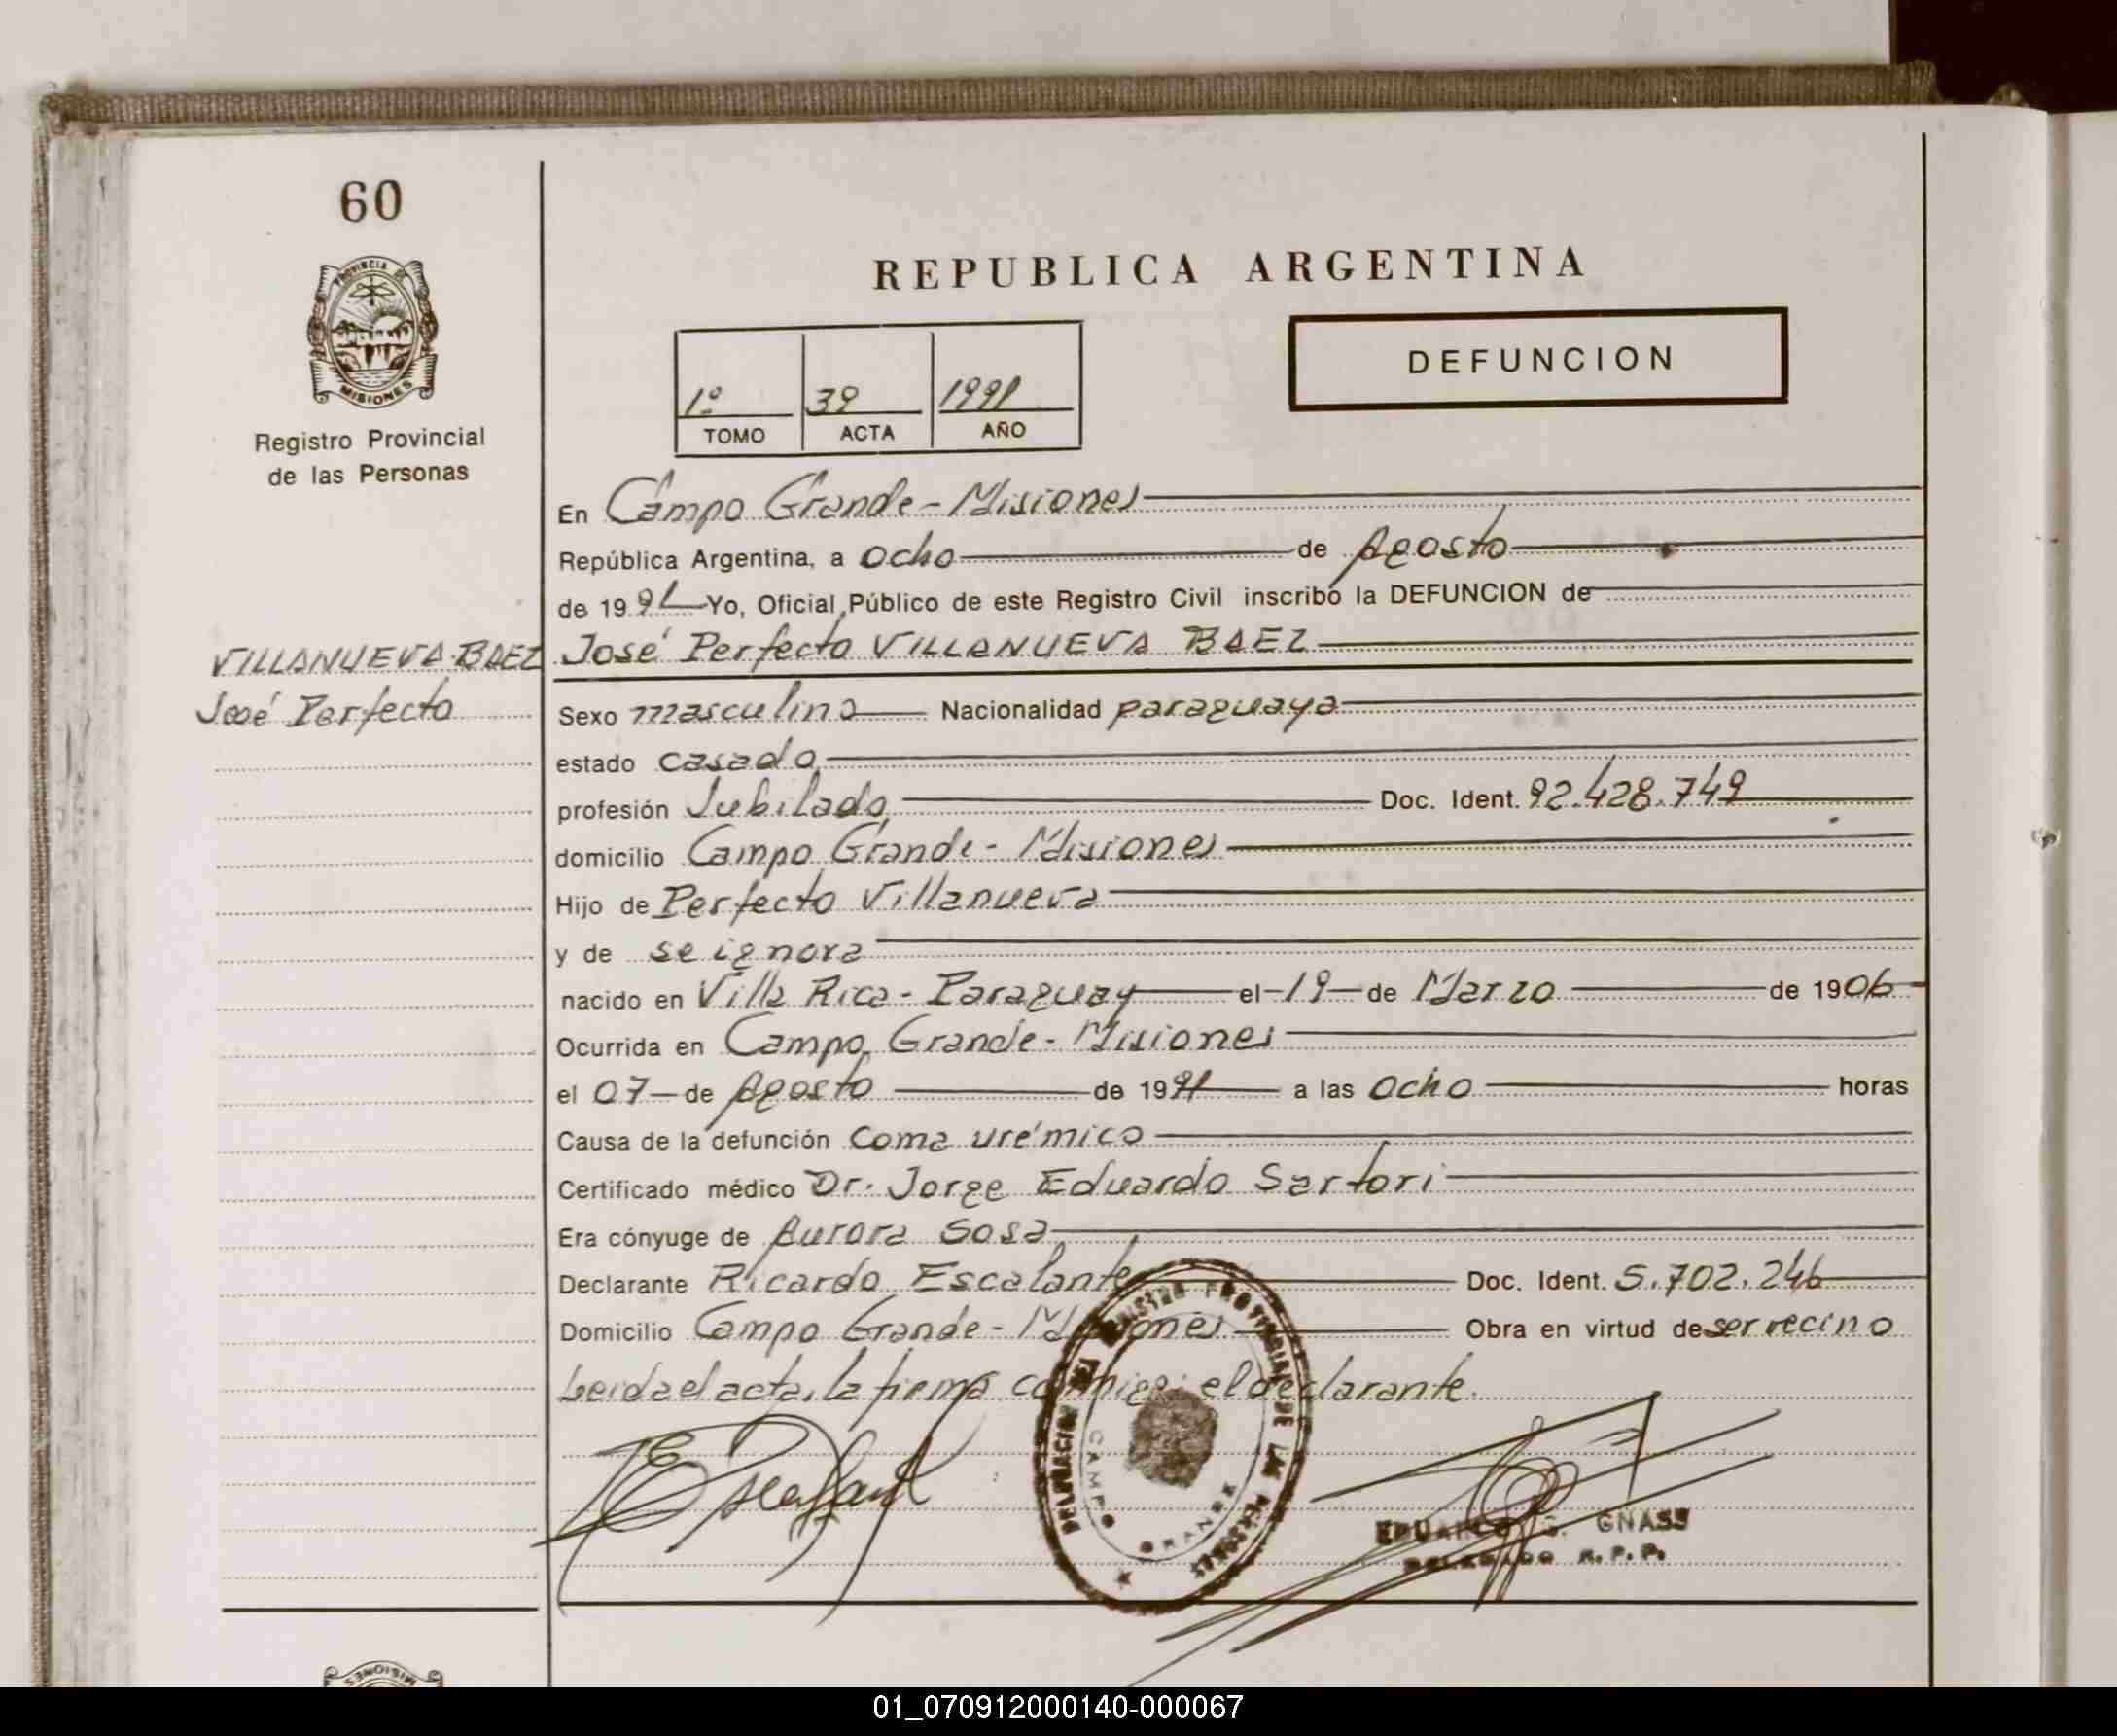 60
PROVINCIA DE
MISIONES
Registro Provincial
de las Personas
VILLANUEVA BAEZ
José Perfecto
REPUBLICA ARGENTINA
1º 39 1991
TOMO ACTA AÑO
DEFUNCION
En Campo Grande - Misiones
República Argentina, a ocho de Agosto
de 1991 Yo, Oficial Público de este Registro Civil inscribo la DEFUNCION de
José Perfecto VILLANUEVA BAEZ
Sexo masculino Nacionalidad paraguaya
estado casado
profesión Jubilado Doc. Ident. 92.428.749
domicilio Campo Grande - Misiones
Hijo de Perfecto Villanueva
y de se ignora
nacido en Villa Rica - Paraguay el 19 de Marzo de 1906
Ocurrida en Campo Grande - Misiones
el 07 de Agosto de 1991 a las ocho horas
Causa de la defunción Coma urémico
Certificado médico Dr. Jorge Eduardo Sartori
Era cónyuge de Aurora Sosa
Declarante Ricardo Escalante Doc. Ident. 5.702.246
Domicilio Campo Grande - Misiones Obra en virtud de ser vecino
Leida el acta, la firma conmigo el declarante.
DELEGACION DEL REGISTRO PROVINCIAL DE LAS PERSONAS
CAMPO GRANDE
EDUARDO GNASS
DELEGADO R.P.P.
MISIONES
01_070912000140-000067